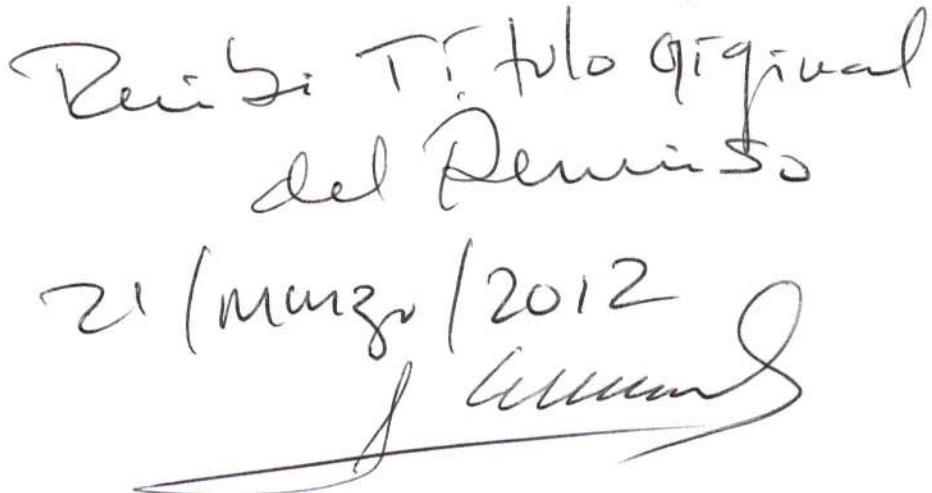 Recibi Título original
del Permiso
21/marzo/2012